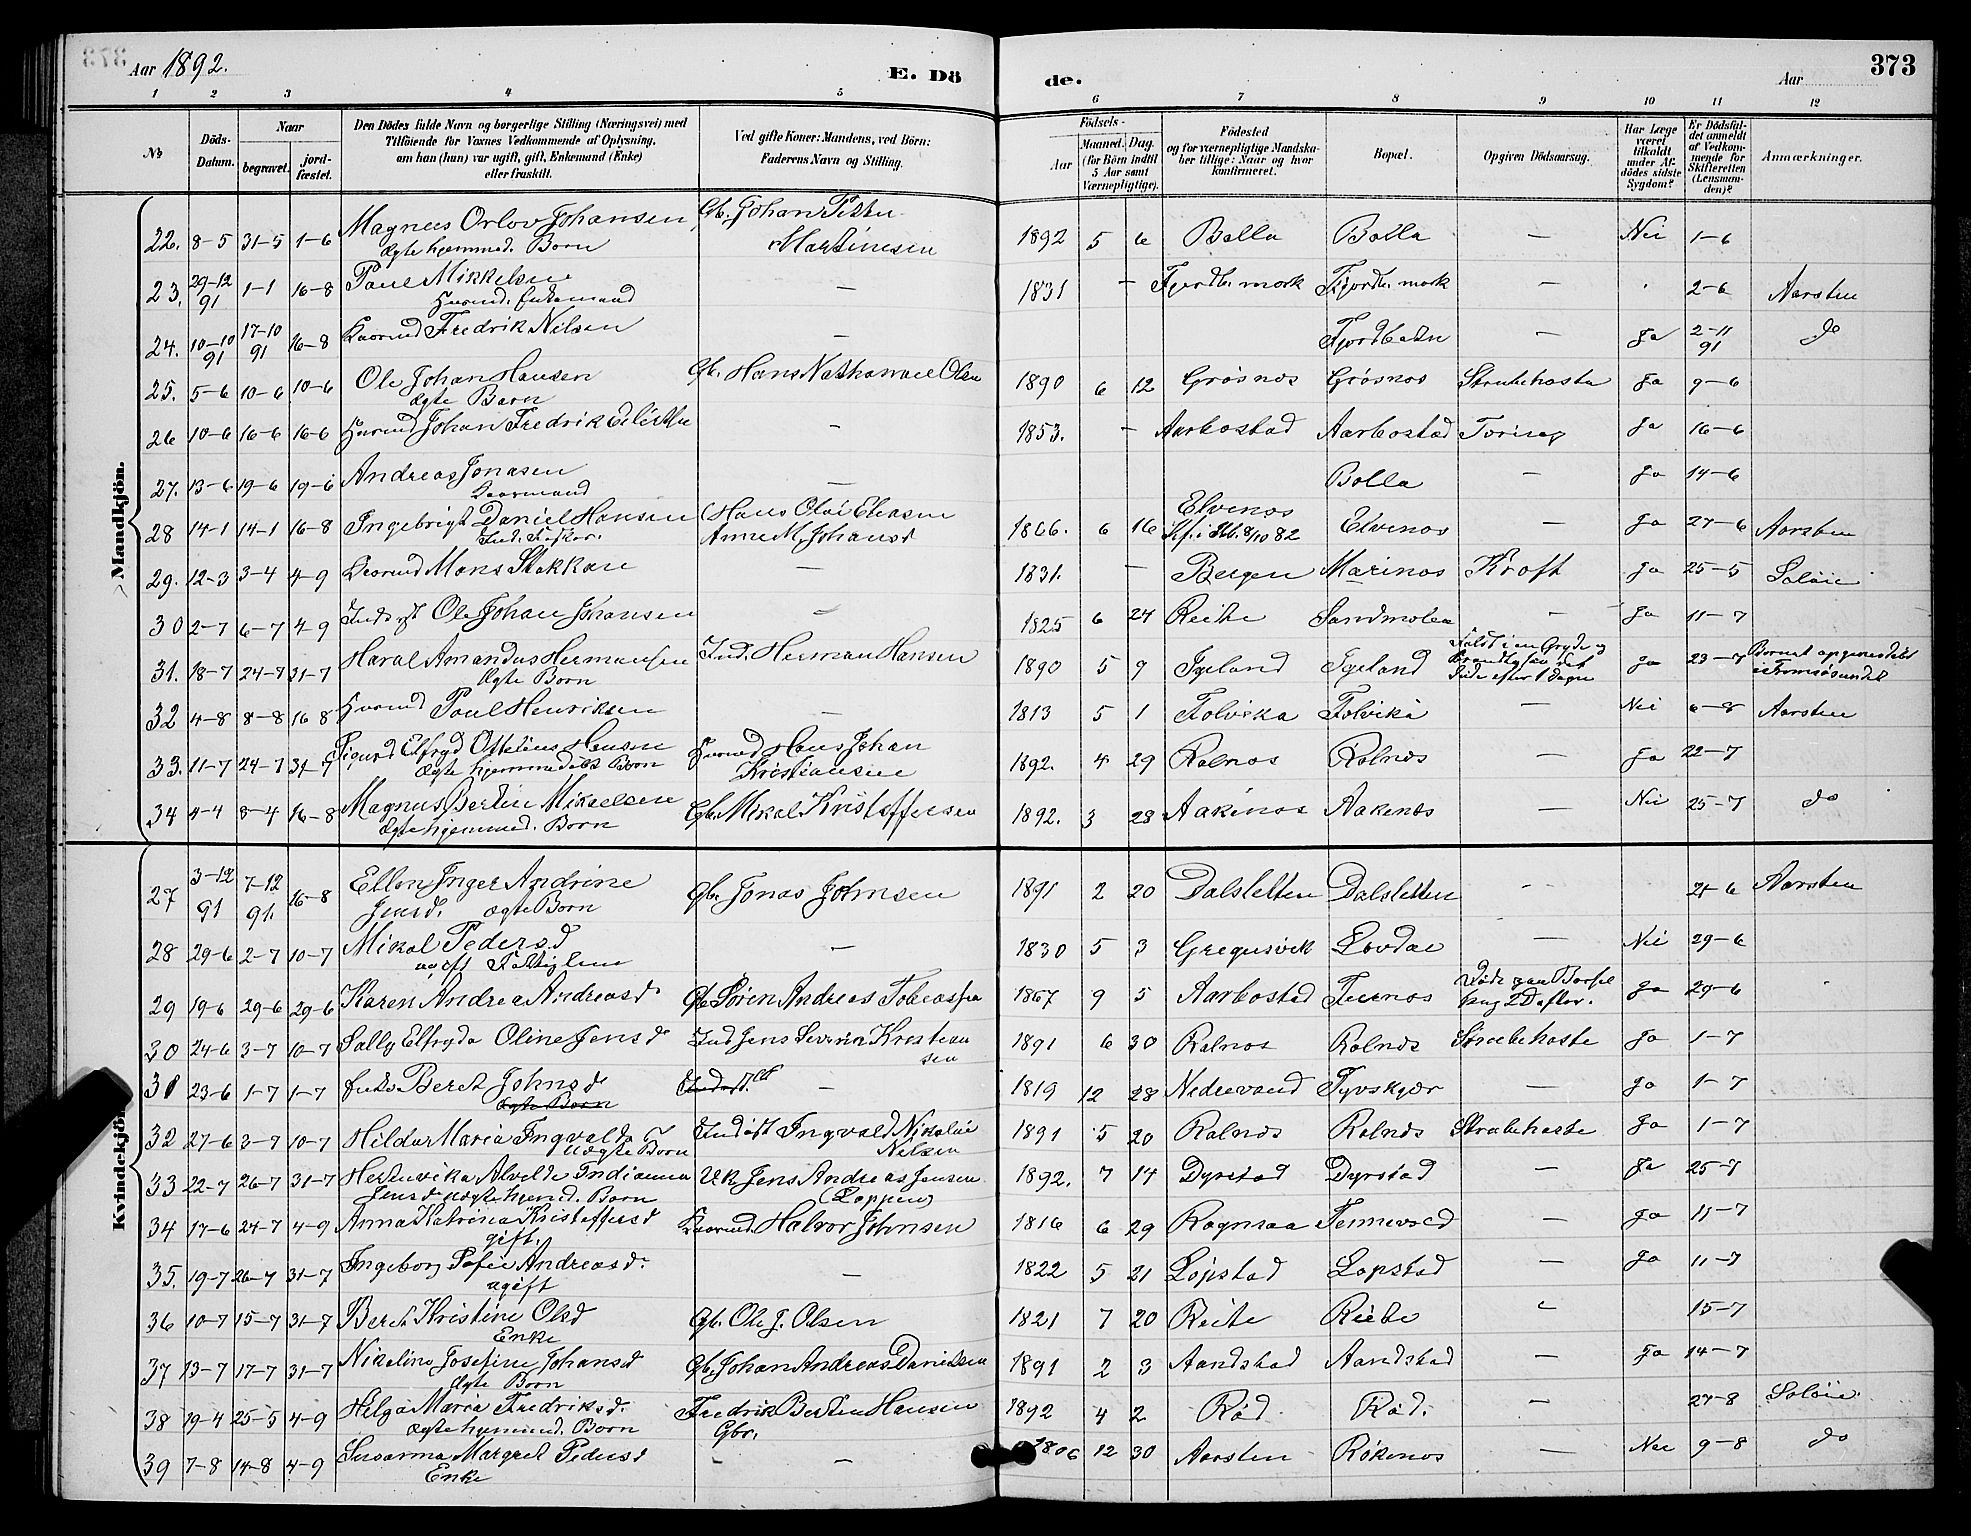 Aar 1892.
E. Dö
de.
Aar
373
1 2 3 4 5 6 7 8 9 10 11 12
№
Döds-Datum.
Naar
begravet.
jord-fæstet.
Den Dödes fulde Navn og borgerlige Stilling (Næringsvei) med
Tilföiende for Voxnes Vedkommende af Oplysning,
om han (hun) var ugift, gift, Enkemand (Enke)
eller fraskilt.
Ved gifte Koner: Mandens, ved Börn:
Faderens Navn og Stilling.
Födsels-
Aar
Maaned. Dag.
(for Börn indtil
5 Aar samt
Værnepligtige).
Födested
og for værnepligtige Mandska-
ber tillige: Naar og hvor
konfirmeret.
Bopæl.
Opgiven Dödsaarsag.
Har Læge
været
tilkaldt
under Af-
dödes sidste
Sygdom?
Er Dödsfal-
det anmeldt
af Vedkom-
mende for
Skifteretten
(Lensman-
den)?
Anmærkninger.
Mandkjön.
22. 8-5 31-5 1-6 Magnus Orlov Johansen Gb. Johan Peter 1892 5 6 Bolla Bolla — Nei 1-6
Ægte hjemmed. Barn Martinusen
23. 29-12 91 1-1 16-8 Paul Mikkelsen — 1831 — Fjordb. mark Fjordb. mark — 2-6 Aarsten
Husmd. Enkemand
24. 10-10 91 17-10 91 16-8 Kaarmd Fredrik Nilsen — Fjordbotn — Ja 2-11 91 do
25. 5-6 10-6 10-6 Ole Johan Hansen Gb. Hans Nathanael Olsen 1890 6 12 Grøsnes Grøsnes Strubehoste Ja 9-6
Ægte Barn
26 10-6 16-6 16-6 Husmd Johan Fredrik — 1853. — Aarbostad Aarbostad Tæring Ja 16-6
27. 13-6 19-6 19-6 Andreas Jonasen — Bolla — Ja 14-6
Kaarmand
28 14-1 14-1 16-8 Ingebrigt Daniel Hansen Hans Olai Eliasen 1866. 6 16 Elvenes Elvenes — Ja 27-6 Aarsten
Ind. Fisker. Anne M. Johansd 8/10 82
29. 12-3 3-4 4-9 Kaarmd Mons Stakkan — 1831. — Bergen Marinos Kræft Ja 25-5 Soløie
30 2-7 6-7 4-9 Inderst Ole Johan Johansen — 1825 6 24 Reite Sandmolen — Ja 11-7
31. 18-7 24-7 31-7 Haral Amandus Hermansen Ind. Herman Hansen 1890 5 9 Igeland Igeland Faldt i en Gryde og Ja 23-7 Barnet
Ægte Barn døde efter 1 Dagn
32 4-8 8-8 16-8 Husmd Paul Henriksen — 1813 5 1 Folvika Folvika — Nei 6-8 Aarsten
33. 11-7 24-7 31-7 Sigurd Elfryd Ottelius Hansen Husmd Hans Johan 1892. 4 29 Rolnes Rolnes — Ja 22-7
Ægte hjemmedøbt Barn Kristiansen
34 4-4 8-4 16-8 Magnus Bertin Mikaelsen Gb. Mikal Kristoffersen 1892. 3 28 Aakenes Aakenes — Nei 25-7 do
Ægte hjemmed. Barn
Kvindekjön.
27 3-12 91 7-12 91. 16-8 Ellen Inger Andrine Gb. Jonas Johnsen 1891 2 20 Dalsletten Dalsletten — 21-6 Aarsten
Ægte Barn
28 29-6 2-7 10-7 Mikal Pedersd — 1830 5 3 Gregusvik Lovdal — Nei 29-6
ugift Fattiglem
29 19-6 29-6 29-6 Karen Andrea Andreasd Gb Søren Andreas Tobiassen 1867 9 5 Aarbostad Tennes Døde paa Barsel Ja 29-6
seng 2 D after.
30 24-6 3-7 10-7 Sally Elfryda Oline Jensd Ind Jens Severin Kristian 1891 6 30 Rolnes Rolnes Strubehoste Ja 1-7
sen
31 23-6 1-7 1-7 Enke Beret Johnsd Inderst — 1819 12 28 Nedrevand Tyvskjær — Ja 1-7
Ægte Barn
32 27-6 3-7 10-7 Hilda Maria Ingvaldsd Inderst Ingvald Nikolai 1891 5 20 Rolnes Rolnes Strubehoste Ja 1-7
Uægte Barn Nilsen
33 22-7 26-7 31-7 Hedevika Alvilde Indianna U.K. Jens Andreas Jensen 1892. 7 14 Dyrstad Dyrstad — Ja 25-7
Jensd uægte hjemd. Barn (Loppen)
34 17-6 24-7 4-9 Anna Katrina Kristoffersd Kaarmd. Halvor Johnsen 1816 6 29 Rognsaa Tennevold — Ja 11-7
gift.
35. 19-7 26-7 31-7 Ingeborg Sofie Andreasd. — 1822 5 21 Løpstad Løpstad — Ja 11-7
ugift
36 10-7 15-7 31-7 Beret Kristine Olsd Gb. Ole J. Olsen 1821 7 20 Reite Reite — 15-7
Enke
37 13-7 17-7 31-7 Nikoline Josefine Johansd Gb. Johan Andreas Danielsen 1891 2 3 Aandstad Aandstad — Ja 14-7
Ægte Barn
38 19-4 25-5 4-9 Helga Maria Fredriksd. Fredrik Bertin Hansen 1892 4 2 Rød. Rød. — 27-8 Soløie
Ægte hjemmd. Barn Gbr.
39 7-8 14-8 4-9 Susanna Margret Pedersd — — 1806 12 30 Aarsten Røkenes — Nei 9-8 do
Enke